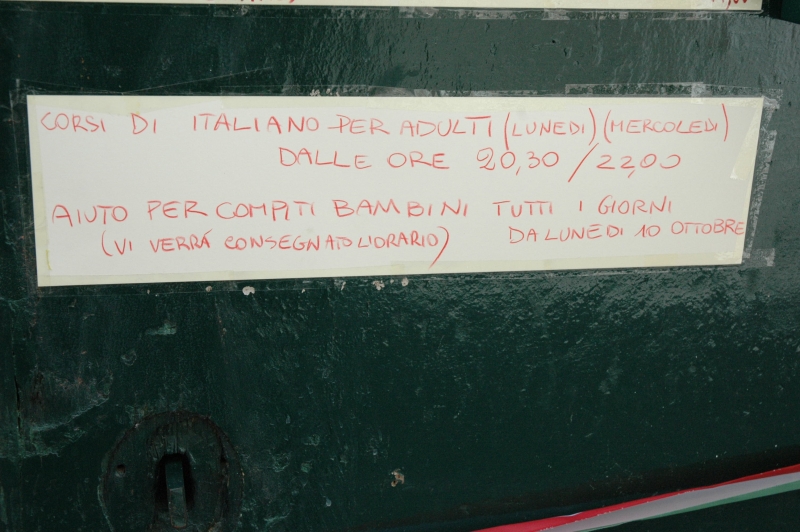 CORSI DI ITALIANO PER ADULTI (LUNEDI) (MERCOLEDI)
DALLE ORE 20,30 / 22,00
AIUTO PER COMPITI BAMBINI TUTTI I GIORNI
(VI VERRÁ CONSEGNATO L'ORARIO) DA LUNEDI 10 OTTOBRE